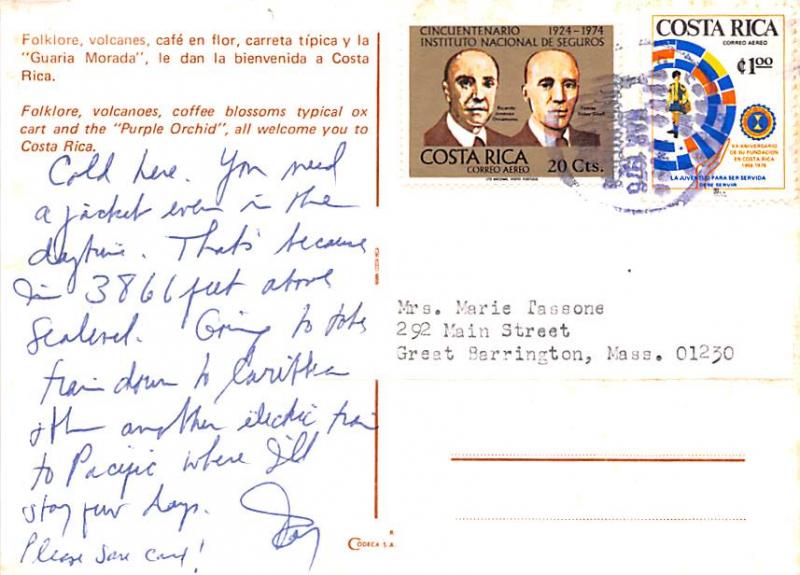 Folklore, volcanes, café en flor, carreta típica y la
"Guaria Morada", le dan la bienvenida a Costa
Rica.
Folklore, volcanoes, coffee blossoms typical ox
cart and the "Purple Orchid", all welcome you to
Costa Rica.
Cold here. You need
a jacket even in the
daytime. That's because
I'm 3866 feet above
Sealevel. Going to take
train down to Caribbean
then another electric train
to Pacific where I'll
stay few days.
Please save card!
CINCUENTENARIO 1924-1974
INSTITUTO NACIONAL DE SEGUROS
Ricardo
Jiménez
COSTA RICA
CORREO AEREO
20 Cts.
COSTA RICA
CORREO AEREO
¢1.00
XX ANIVERSARIO
DE SU FUNDACION
EN COSTA RICA
LA JUVENTUD PARA SER SERVIDA
DEBE SERVIR
MAR 1976
Mrs. Marie Tassone
292 Main Street
Great Barrington, Mass. 01230
CODECA S.A.